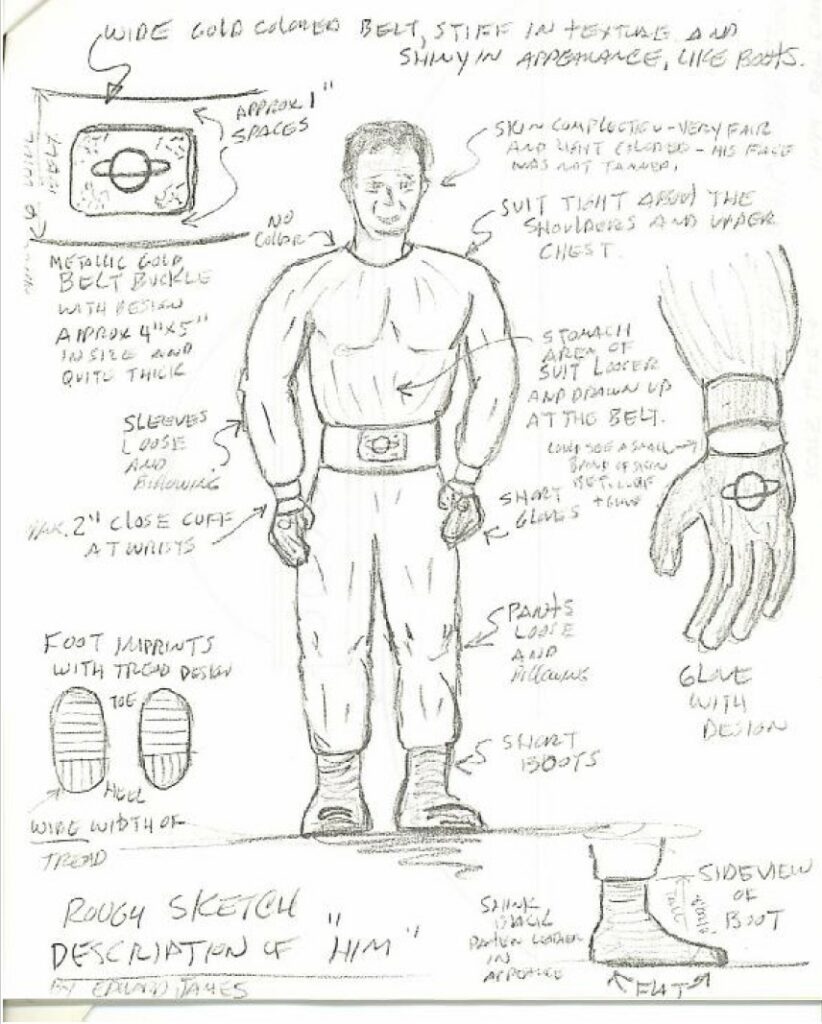 WIDE GOLD COLORED BELT, STIFF IN TEXTURE AND
SHINY IN APPEARANCE, LIKE BOOTS.
APPROX 1"
SPACES
WIDE
BELT
METALLIC GOLD
BELT BUCKLE
WITH DESIGN
APPROX 4"X5"
IN SIZE AND
QUITE THICK
NO
COLLAR
SKIN COMPLECTION - VERY FAIR
AND LIGHT COLORED - HIS FACE
WAS NOT TANNED.
SUIT TIGHT ABOUT THE
SHOULDERS AND UPPER
CHEST.
STOMACH
AREA OF
SUIT LOOSER
AND DRAWN UP
AT THE BELT.
SLEEVES
LOOSE
AND
BILLOWING
2" CLOSE CUFF
AT WRISTS
SHORT
GLOVES
COULD SEE A SMALL
BAND OF SKIN
BET. CUFF
+ GLOVE
GLOVE
WITH
DESIGN
PANTS
LOOSE
AND
BILLOWING
FOOT IMPRINTS
WITH TREAD DESIGN
TOE
HEEL
WIDE WIDTH OF
TREAD
SHORT
BOOTS
SIDEVIEW
OF
BOOT
TALL
BLACK
LEATHER
IN
FLAT
ROUGH SKETCH
DESCRIPTION OF "HIM"
BY EDWARD JAMES